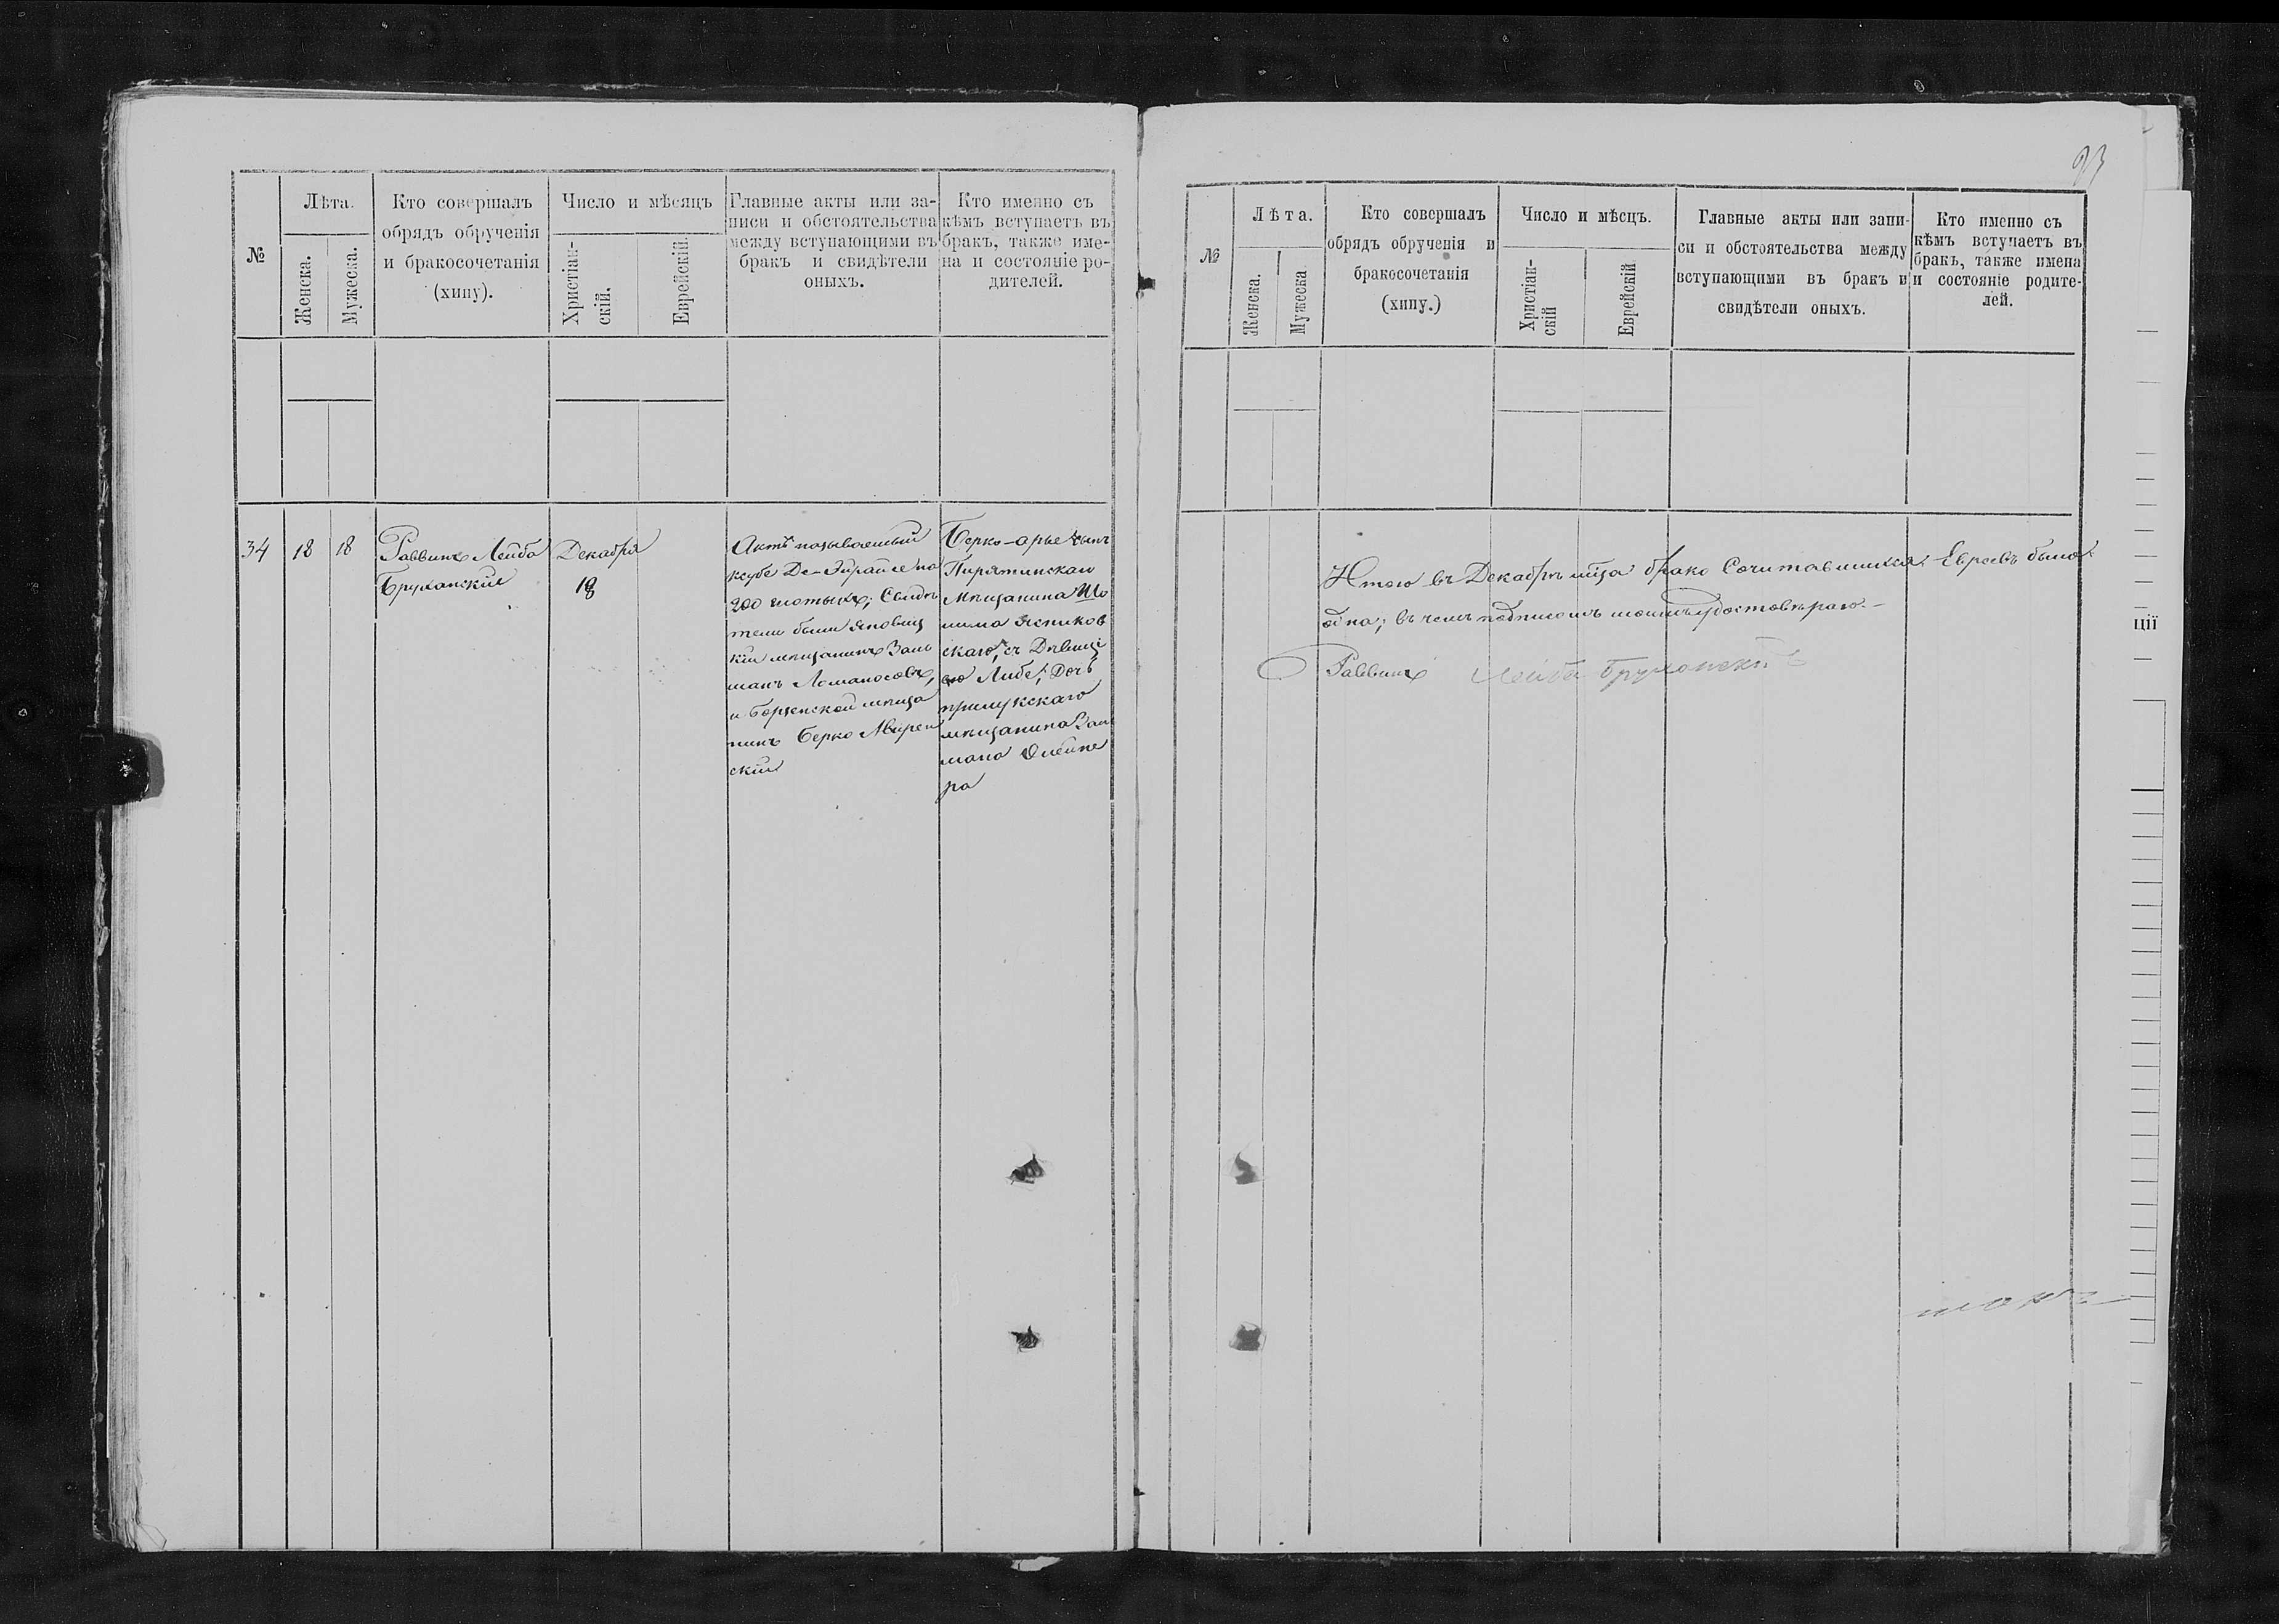 №
Лѣта.
Женска.
Мужеска.
Кто совершалъ
обрядъ обрученія
и бракосочетанія
(хипу).
Число и мѣсяцъ
Христіан-
скій.
Еврейскій.
Главные акты или за-
писи и обстоятельства
между вступающими въ
бракъ и свидѣтели
оныхъ.
Кто именно съ
кѣмъ вступаетъ въ
бракъ, также име-
на и состояніе ро-
дителей.
34
18
18
Раввинъ Лейба
Бруханскій
Декабря
18
Актъ называемый
ксубе Де-Эйрайсе на
200 злотыхъ; Свидѣ
тели были
кій мѣщанинъ Заль
манъ Ломаносовъ,
и Борзенской мѣща
нинъ Берко Мирен
скій
Берко-арье сынъ
Пирятинскаго
Мѣщанина Шо
лима Ясников
скаго, съ Дѣвиц
ею Либе, Дочь
прилукскаго
мѣщанина Зал
мана Олейни
ра
93
№
Лѣта.
Женска.
Мужеска
Кто совершалъ
обрядъ обрученія и
бракосочетанія
(хипу.)
Число и мѣсцъ.
Христіан-
скій
Еврейскій
Главные акты или запи-
си и обстоятельства между
вступающими въ бракъ и
свидѣтели оныхъ.
Кто именно съ
кѣмъ вступаетъ въ
бракъ, также имена
и состояніе родите-
лей.
Итого въ Декабрѣ мѣца брако Сочитавшихся Евреевъ была
одна; въ чемъ подписомъ моимъ удостовѣраю.-
Раввинъ Лейба Бруханскій
ції